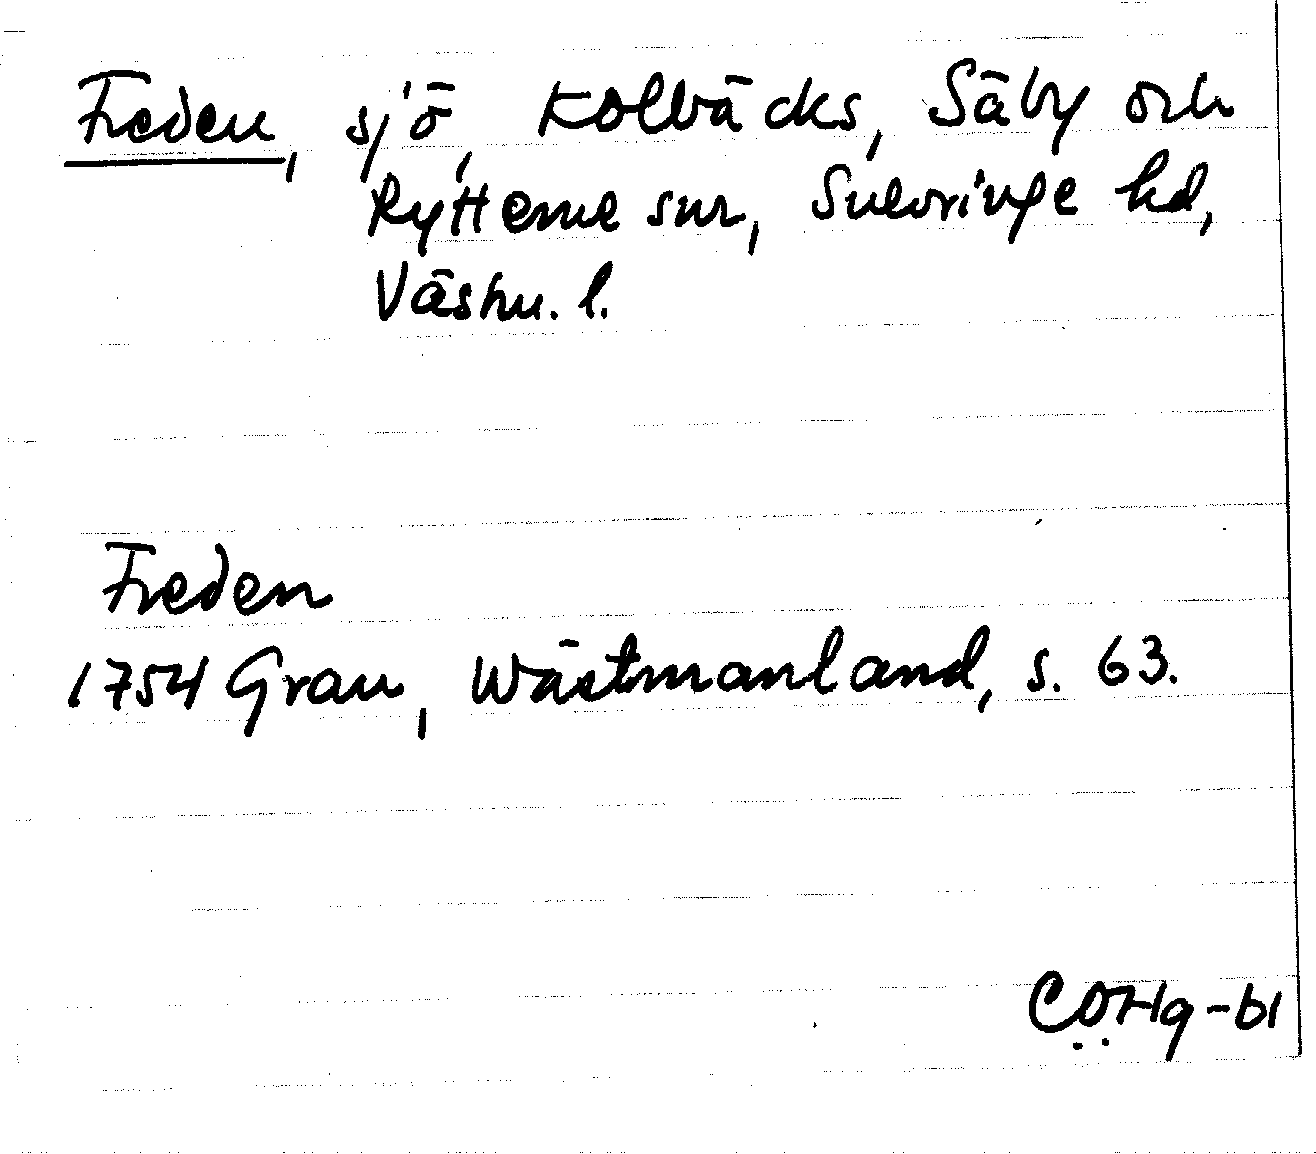 Freden, sjö, Kolbäcks, Säby och
Rytterne snr, Snevringe hd,
Västm. l.
Freden
1754 Grau, Wästmanland, s. 63.